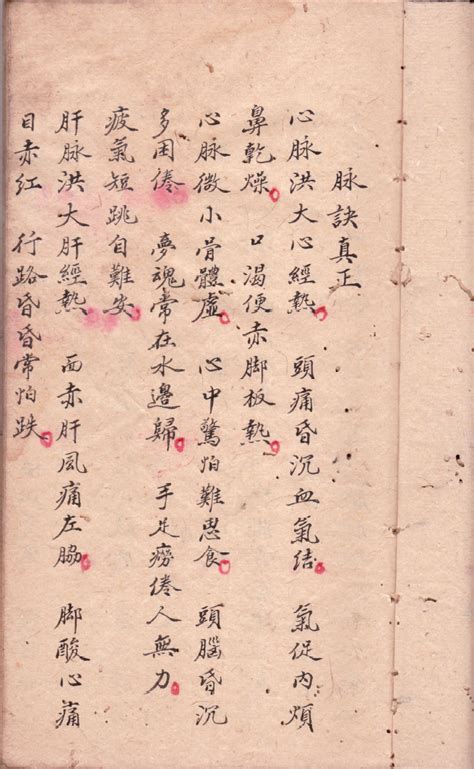 脉訣真正
心脉洪大心經熱 頭痛昏沉血氣結 氣促内煩
鼻乾燥 口渴便赤脚板熱
心脉微小骨體虛 心中驚怕難思食 頭腦昏沉
多困倦 夢魂常在水邊歸 手足癆倦人無力
疲氣短跳自難安
肝脉洪大肝經熱 面赤肝風痛左脇 脚酸心痛
目赤紅 行路昏昏常怕跌